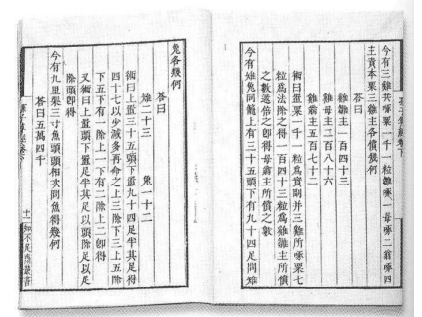 今有三雞共啄粟一千一粒雛啄一母啄二翁啄四
主責本粟三雞主各償幾何
答曰
雞雛主一百四十三
雞母主二百八十六
雞翁主五百七十二
術曰置粟一千一粒爲實副并三雞所啄粟七
粒爲法除之得一百四十三粒爲雞雛主所償
之數遞倍之卽得母翁主所償之數
今有雉兔同籠上有三十五頭下有九十四足問雉
兔各幾何
答曰
雉二十三 兔一十二
術曰上置三十五頭下置九十四足半其足得
四十七以少減多再命之上三除下三上五除
下五下有一除上一下有二除上二卽得
又術曰上置頭下置足半其足以頭除足以足
除頭卽得
今有九里渠三寸魚頭頭相次問魚得幾何
答曰五萬四千
孫子算經卷下 十一 知不足齋叢書